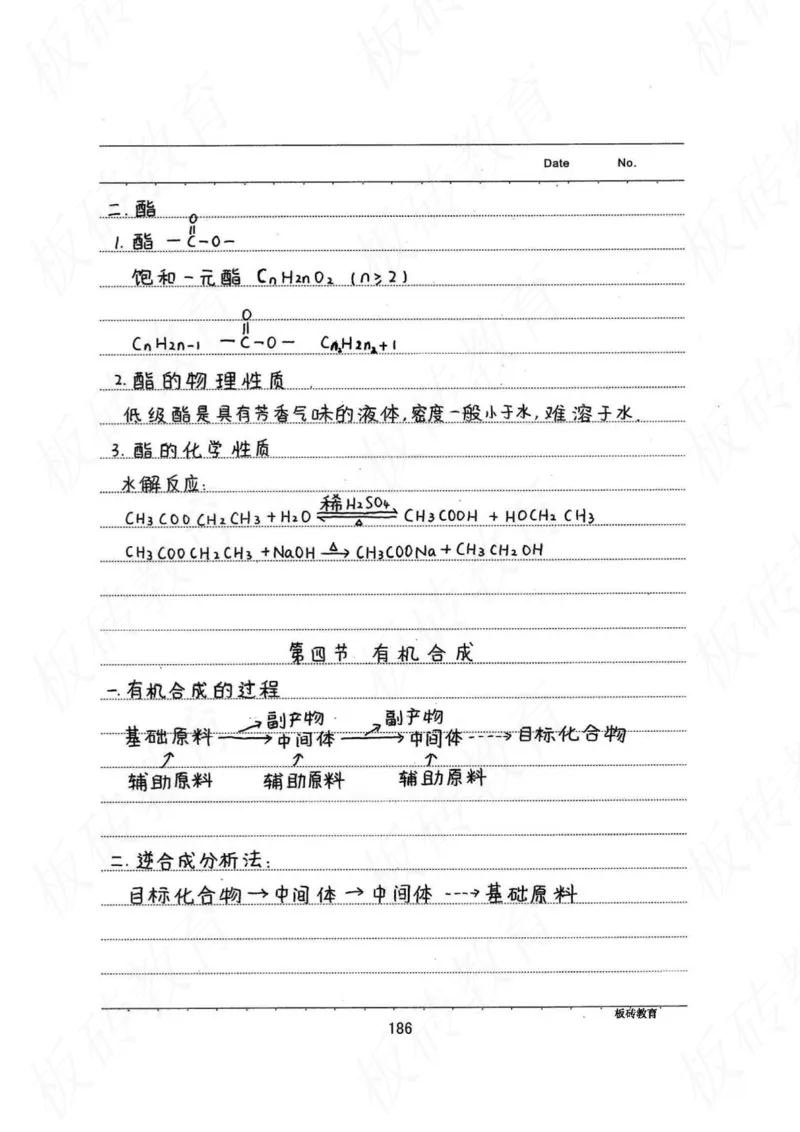 Date No.
二.酯
O
||
1. 酯 —C—O—
饱和一元酯 CnH2nO2 (n≥2)
O
||
CnH2n-1 —C—O— Cn2H2n2+1
2. 酯的物理性质
低级酯是具有芳香气味的液体,密度一般小于水,难溶于水.
3. 酯的化学性质
水解反应:
CH3COOCH2CH3 + H2O ⇌ 稀H2SO4 △ CH3COOH + HOCH2CH3
CH3COOCH2CH3 + NaOH △→ CH3COONa + CH3CH2OH
第四节 有机合成
一.有机合成的过程
→副产物 →副产物
基础原料 → 中间体 → 中间体 ----→ 目标化合物
↑ ↑ ↑
辅助原料 辅助原料 辅助原料
二.逆合成分析法:
目标化合物 → 中间体 → 中间体 ---→ 基础原料
板砖教育
186